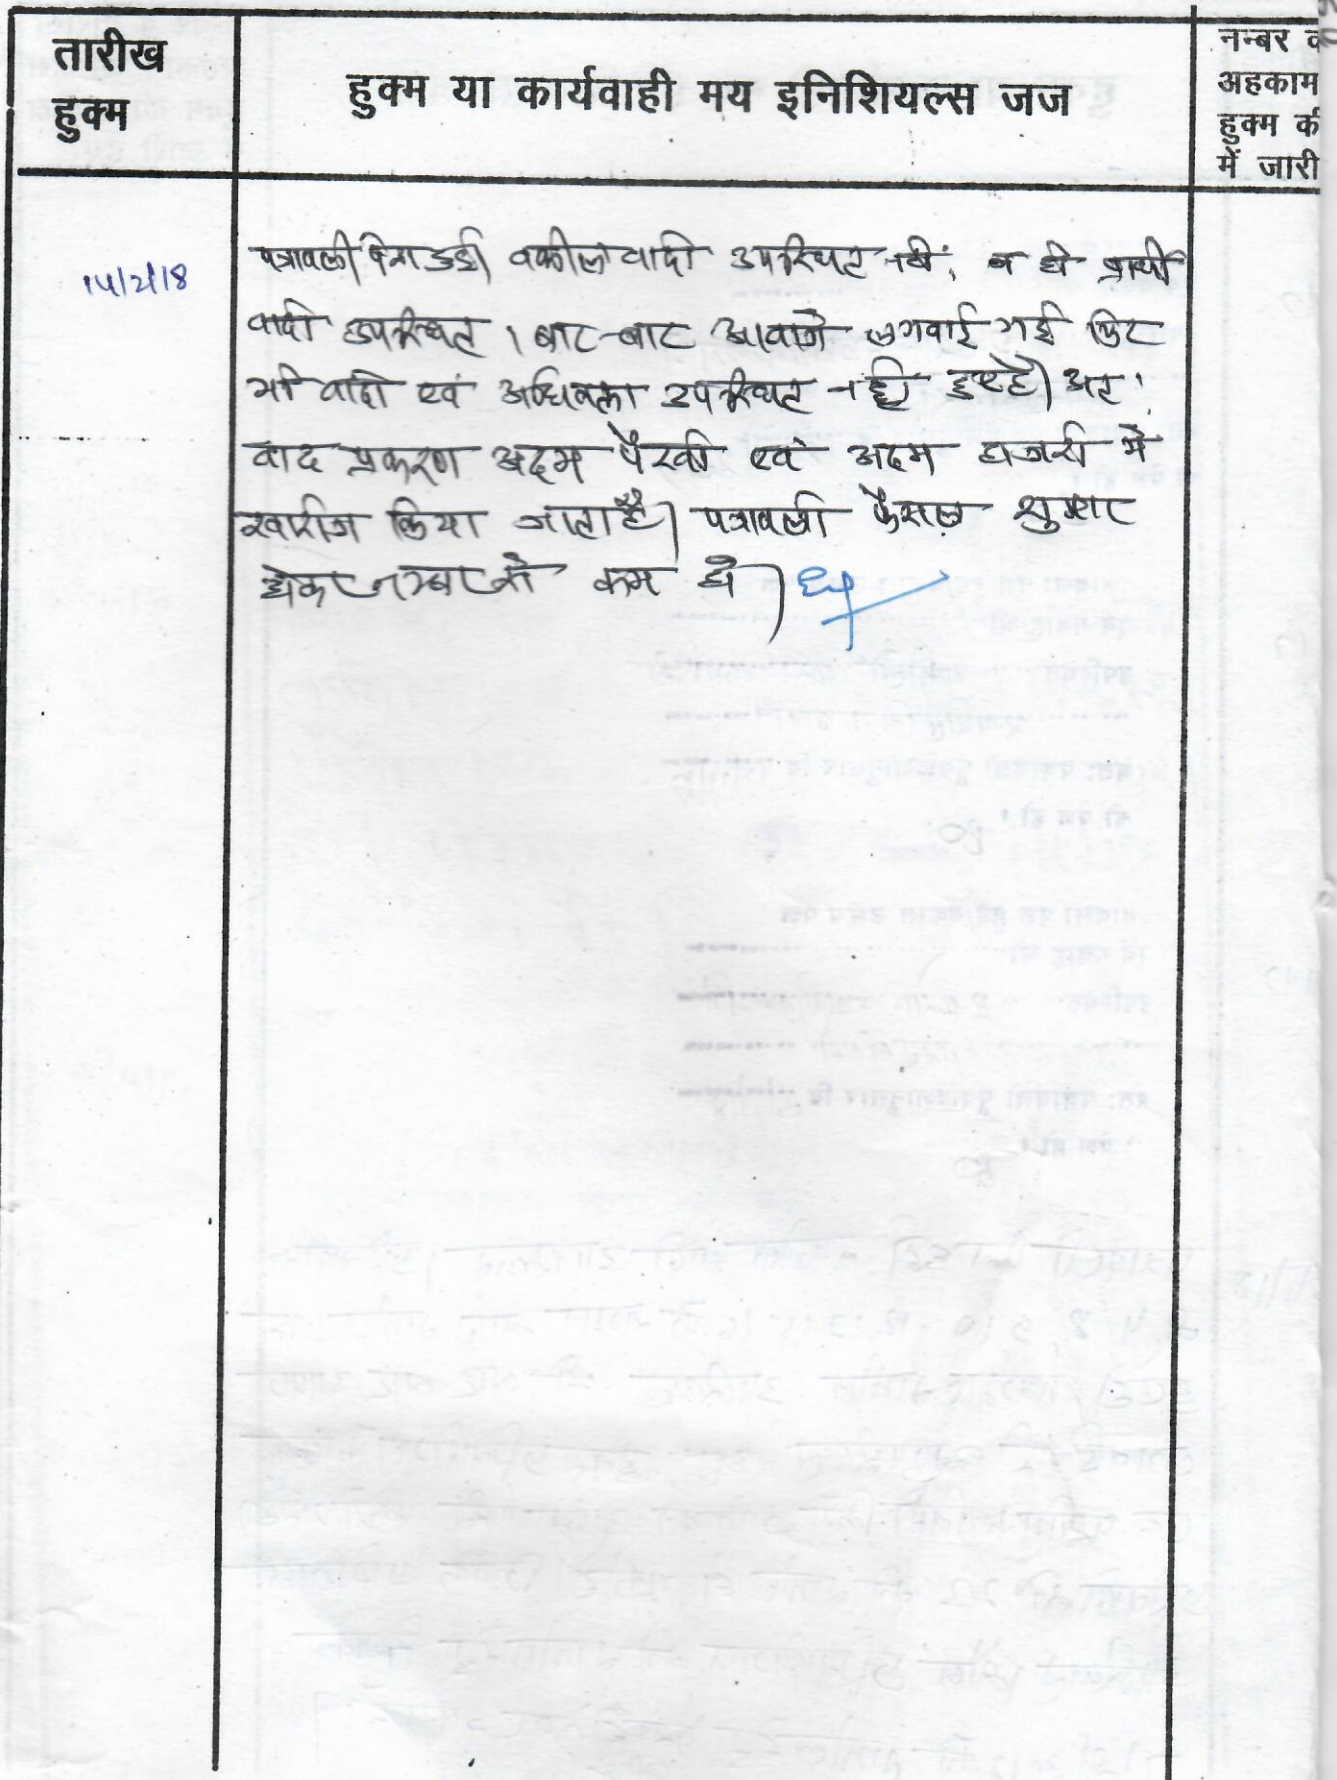 तारीख
हुक्म
हुक्म या कार्यवाही मय इनिशियल्स जज
नम्बर व
अहकाम
हुक्म की
में जारी
14/2/18
पत्रावली पेश हुई। वकील वादी उपस्थित नहीं, न ही प्रार्थी
वादी उपस्थित। बार-बार आवाजे लगवाई गई फिर
भी वादी एवं अधिवक्ता उपस्थित नही हुए है। अतः
वाद प्रकरण अदम पैरवी एवं अदम हाजरी में
खारीज किया जाता है। पत्रावली फैसल शुमार
होकर से कम हो।